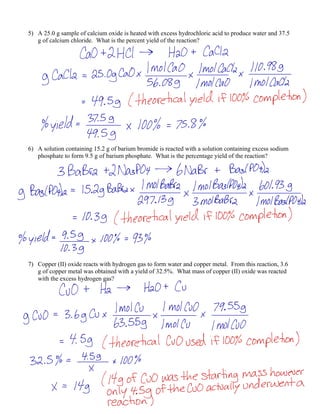 5) A 25.0 g sample of calcium oxide is heated with excess hydrochloric acid to produce water and 37.5
g of calcium chloride. What is the percent yield of the reaction?
CaO + 2 HCl → H2O + CaCl2
g CaCl2 = 25.0g CaO × 1 mol CaO / 56.08g × 1 mol CaCl2 / 1 mol CaO × 110.98g / 1 mol CaCl2
= 49.5g (theoretical yield if 100% completion)
% yield = 37.5g / 49.5g × 100% = 75.8%
6) A solution containing 15.2 g of barium bromide is reacted with a solution containing excess sodium
phosphate to form 9.5 g of barium phosphate. What is the percentage yield of the reaction?
3 BaBr2 + 2 Na3PO4 → 6 NaBr + Ba3(PO4)2
g Ba3(PO4)2 = 15.2g BaBr2 × 1 mol BaBr2 / 297.13g × 1 mol Ba3(PO4)2 / 3 mol BaBr2 × 601.93g / 1 mol Ba3(PO4)2
= 10.3g (theoretical yield if 100% completion)
% yield = 9.5g / 10.3g × 100% = 93%
7) Copper (II) oxide reacts with hydrogen gas to form water and copper metal. From this reaction, 3.6
g of copper metal was obtained with a yield of 32.5%. What mass of copper (II) oxide was reacted
with the excess hydrogen gas?
CuO + H2 → H2O + Cu
g CuO = 3.6g Cu × 1 mol Cu / 63.55g × 1 mol CuO / 1 mol Cu × 79.55g / 1 mol CuO
= 4.5g (theoretical CuO used if 100% completion)
32.5% = 4.5g / x × 100%
x = 14g (14g of CuO was the starting mass however
only 4.5g of the CuO actually underwent a
reaction)